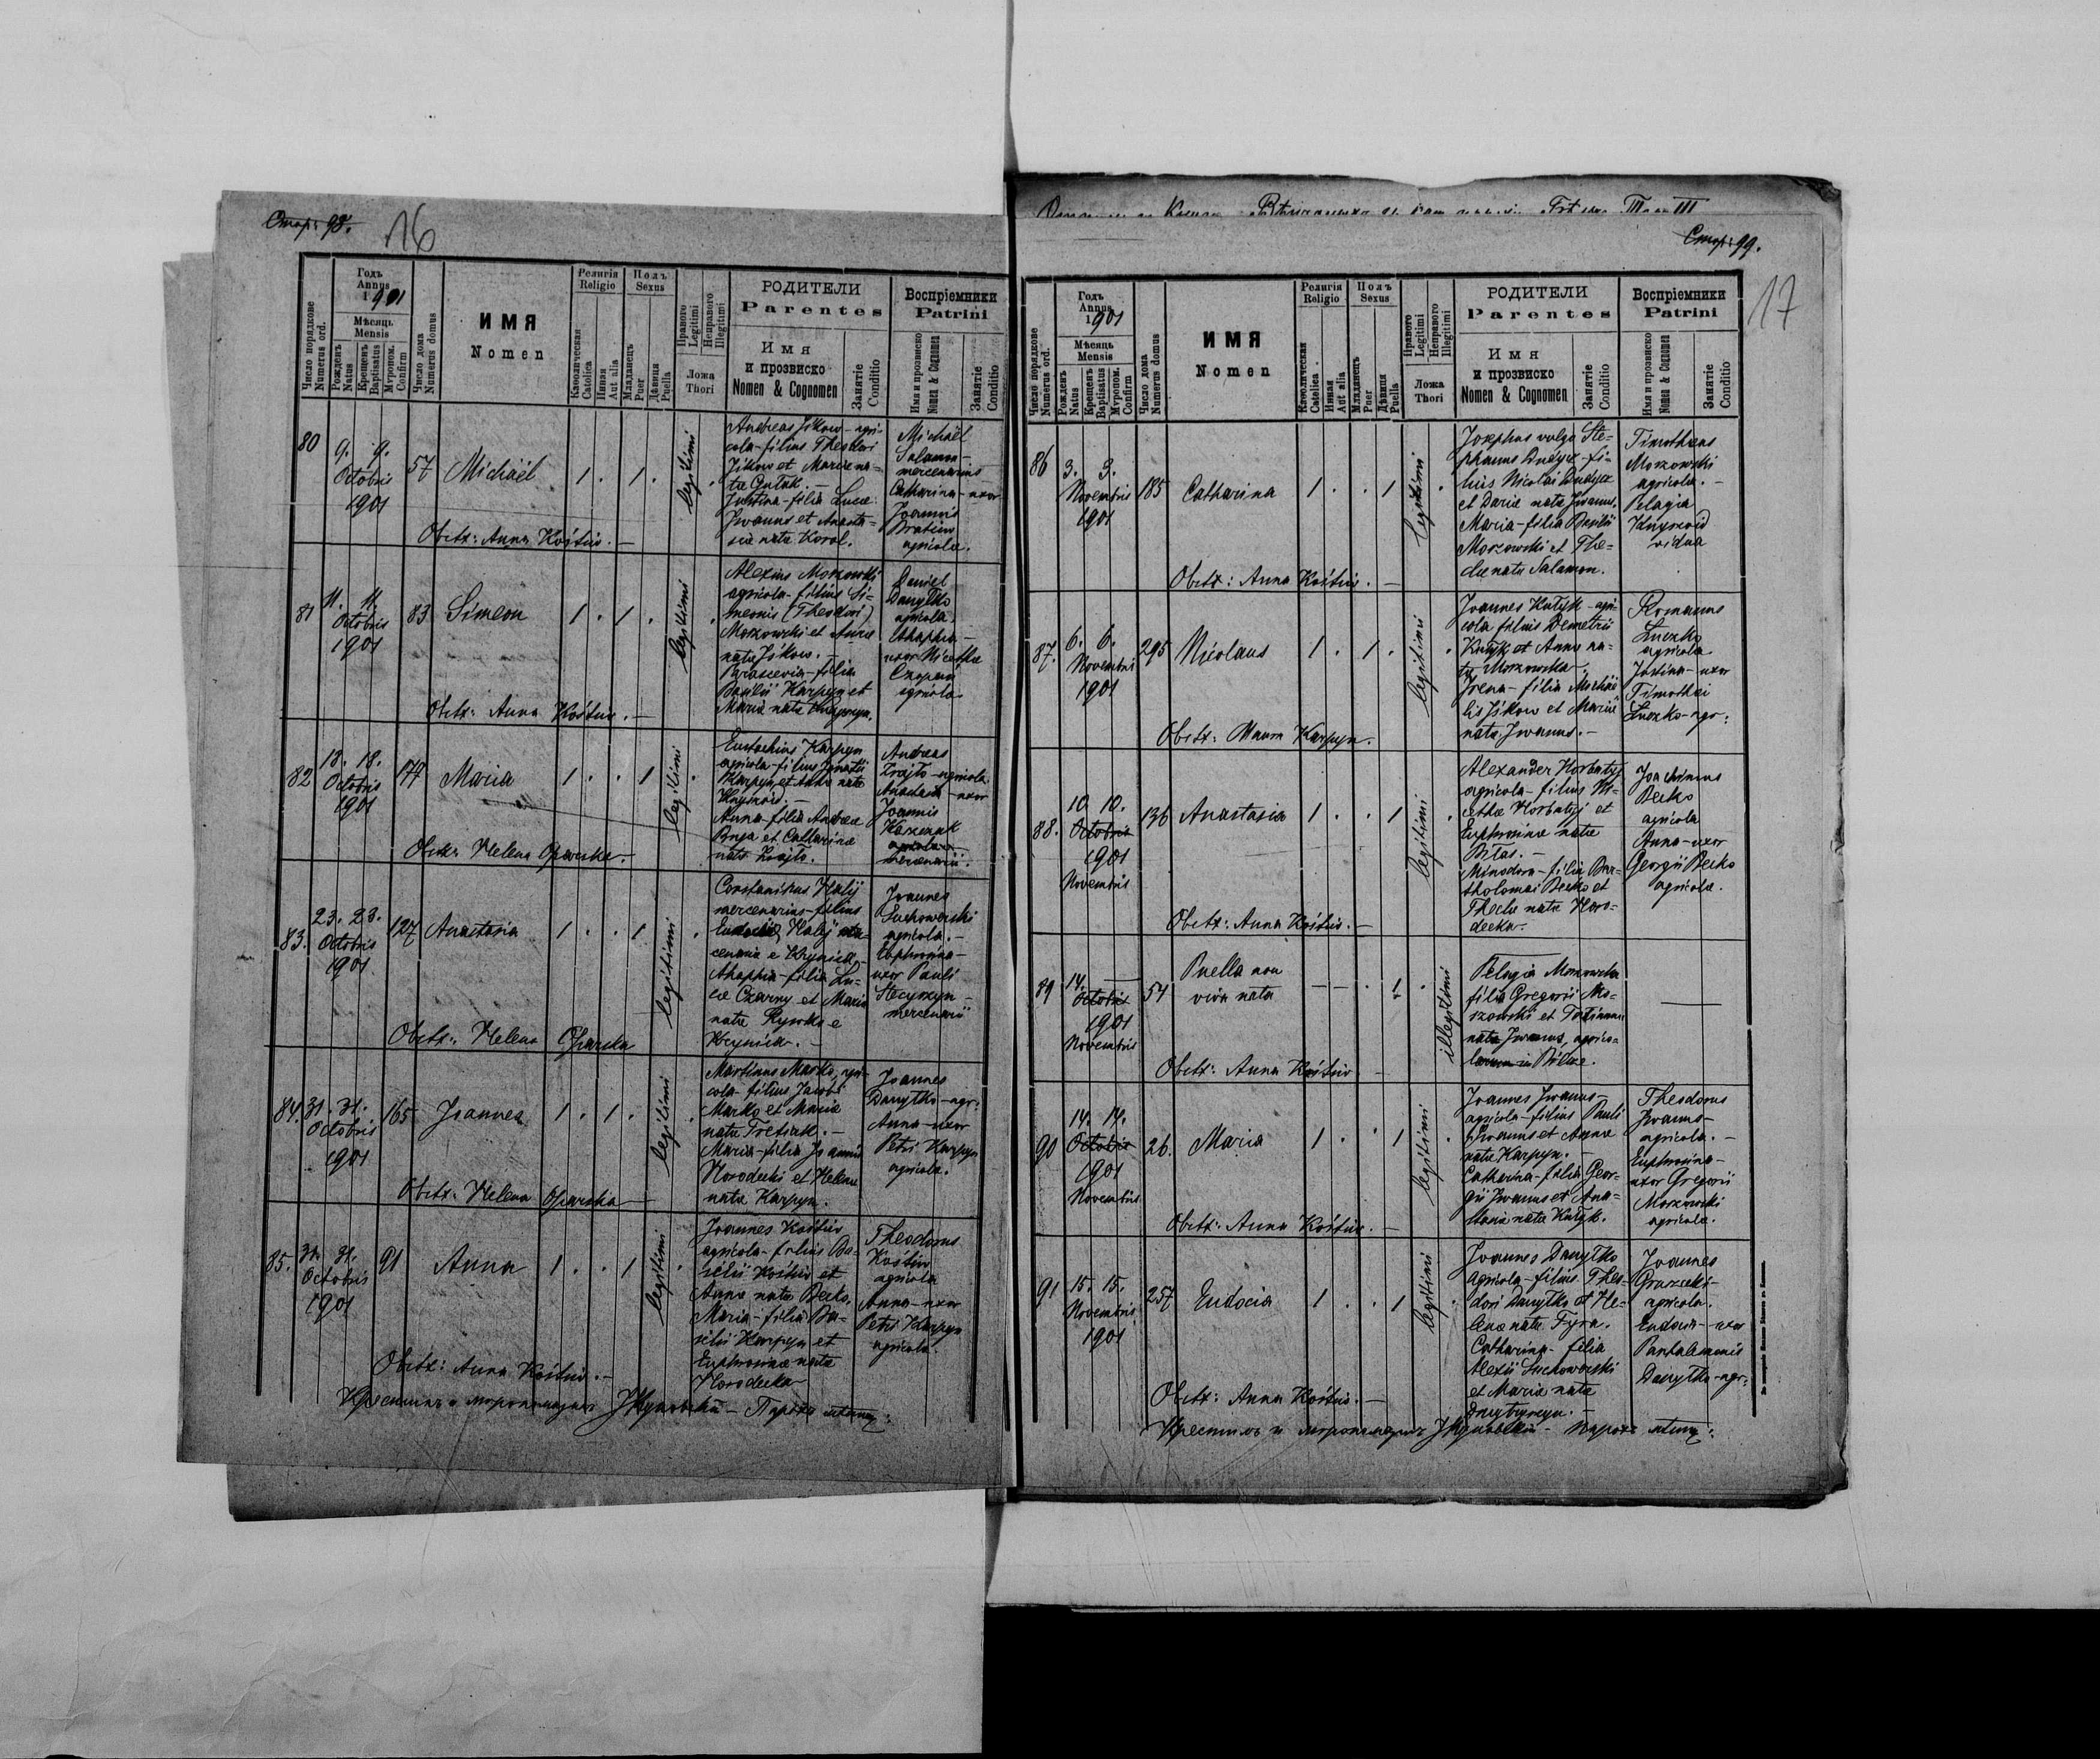 Стор: 98.
16
Число порядкове
Numerus ord.
Годъ
Annus
1901
Мѣсяць
Mensis
Рожденъ
Natus
Крещенъ
Baptisatus
Муропом.
Confirm
Число дома
Numerus domus
ИМЯ
Nomen
Религія
Religio
Каѳолическая
Catolica
Инная
Aut alia
Полъ
Sexus
Младенецъ
Puer
Дѣвиця
Puella
Правого
Legitimi
Неправого
Illegitimi
Ложа
Thori
РОДИТЕЛИ
Parentes
Имя
и прозвиско
Nomen & Cognomen
Занятіе
Conditio
Воспріемники
Patrini
Имя и прозвиско
Nomen & Cognomen
Занятіе
Conditio
80
9. 9.
Octobris
1901
57
Michaël
1 . 1 .
legitimi
Andreas Jśkow - agri-
cola - filius Theodori
Jśkow et Mariae na-
tae
Justina - filia Lucae
Jwanus et Anasta-
siae natae Korol.
Michaël
Salamon -
mercenarius
Catharina - uxor
Joannis
agricolae.
Obstx: Anna Kośtiw. -
81
11. 11.
Octobris
1901
83
Simeon
1 . 1 .
legitimi
Alexius Morzowski
agricola - filius Si-
meonis (Theodori)
Morzowski et Annae
natae Jśkow. -
Parascevia - filia
Basilii Karpyn et
Mariae natae
Daniel
Danyłko
agricola.
Ahaphia -
uxor Nicethae
agricolae
Obstx: Anna Kośtiw. -
82
18. 18.
Octobris
1901
177
Maria
1 . . 1 .
legitimi
Eustachius Karpyn
agricola - filius Ignatii
Karpyn et Annae natae
Anna - filia Andreae
et Catharinae
natae
Andreas
agricola.
Anastasia - uxor
Joannis
agricolae
mercenarii.
Obstx: Helena Oparska. -
83.
23. 23.
Octobris
1901.
127
Anastasia
1 . . 1 .
legitimi
Constantinus Halij
mercenarius - filius
Eudociae Halij
Ahaphia - filia Lu-
cae Czarny et Mariae
natae e
Joannes
Suchoworski
agricola. -
Euphrosina -
uxor Pauli
Stecyszyn -
mercenarii
Obstx: Helena Oparska
84.
31. 31.
Octobris
1901
165
Joannes
1 . 1 .
legitimi
Martinus Marko, agri-
cola - filius Jacobi
Marko et Mariae
natae Tretiak. -
Maria - filia Joannis
Horodecki et Helenae
natae Karpyn.
Joannes
Danyłko - agr:
Anna - uxor
Petri Karpyn
agricolae.
Obstx: Helena Oparska
85.
31. 31.
Octobris
1901
91
Anna
1 . . 1 .
legitimi
Joannes Kośtiw
agricola - filius Ba-
silii Kośtiw et
Annae natae Becko.
Maria - filia Ba-
silii Karpyn et
Euphrosinae natae
Horodecka
Theodorus
Kośtiw
agricola
Anna - uxor
Petri Karpyn
agricolae.
Obstx: Anna Kośtiw. -
Крестилъ и муропомазалъ
Стор: 99.
17
Число порядкове
Numerus ord.
Годъ
Annus
1901
Мѣсяць
Mensis
Рожденъ
Natus
Крещенъ
Baptisatus
Муропом.
Confirm
Число дома
Numerus domus
ИМЯ
Nomen
Религія
Religio
Каѳолическая
Catolica
Инная
Aut alia
Полъ
Sexus
Младенецъ
Puer
Дѣвиця
Puella
Правого
Legitimi
Неправого
Illegitimi
Ложа
Thori
РОДИТЕЛИ
Parentes
Имя
и прозвиско
Nomen & Cognomen
Занятіе
Conditio
Воспріемники
Patrini
Имя и прозвиско
Nomen & Cognomen
Занятіе
Conditio
86
3. 3.
Novembris
1901
185
Catharina
1 . . 1 .
legitimi
Josephus vulgo Ste-
phanus Dudycz - fi-
lius Nicolai Dudycz
et Dariae natae Jwanus.
Maria - filia Basilii
Morzowski et The-
clae natae Salamon.
Timotheus
Morzowski
agricola. -
Pelagia
vidua
Obstx: Anna Kośtiw. -
87.
6. 6.
Novembris
1901
295
Nicolaus
1 . 1 .
legitimi
Joannes Kutyk - agri-
cola filius Demetrii
Kutyk et Annae na-
tae Morzowska.
Irena - filia Michaë-
lis Jśkow et Mariae
natae Jwanus. -
Romanus
Łuczko
agricola
Justina - uxor
Timothei
Łuczko - agr:
Obstx: Maura Karpyn.
88.
10. 10.
Octobris
1901
Novembris
136
Anastasia
1 . . 1 .
legitimi
Alexander Horbatyj
agricola - filius Ni-
cethae Horbatyj et
Euphrosinae natae
Biłas. -
Minodora - filia Bar-
tholomaei Becko et
Theclae natae Horo-
decka. -
Joachimus
Becko
agricola
Anna - uxor
Georgii Becko
agricolae.
Obstx: Anna Kośtiw. -
89
14.
Octobris
1901
Novembris
54
Puella non
viva nata
- - . 1 .
illegitimi
Pelagia Morzowska
filia Gregorii Mo-
rzowski et Tatiannae
natae Jwanus, agrico-
larum in Bilcze.
Obstx: Anna Kośtiw. -
90
14. 14.
Octobris
1901
Novembris
26.
Maria
1 . . 1 .
legitimi
Joannes Jwanus -
agricola - filius Pauli
Jwanus et Annae
natae Karpyn. -
Catharina - filia Geor-
gii Jwanus et Ana-
stasiae natae Kutyk.
Theodorus
Jwanus -
agricola. -
Euphrosina -
uxor Gregorii
Morzowski
agricolae.
Obstx: Anna Kośtiw. -
91
15. 15.
Novembris
1901
257
Eudocia
1 . . 1 .
legitimi
Joannes Danyłko
agricola - filius Theo-
dori Danyłko et He-
lenae natae Tyra.
Catharina - filia
Alexii Suchoworski
et Mariae natae
Joannes
agricola.
Eudocia - uxor
Pantaleimonis
Danyłko - agr:
Obstx: Anna Kośtiw. -
Крестилъ и муропомазалъ